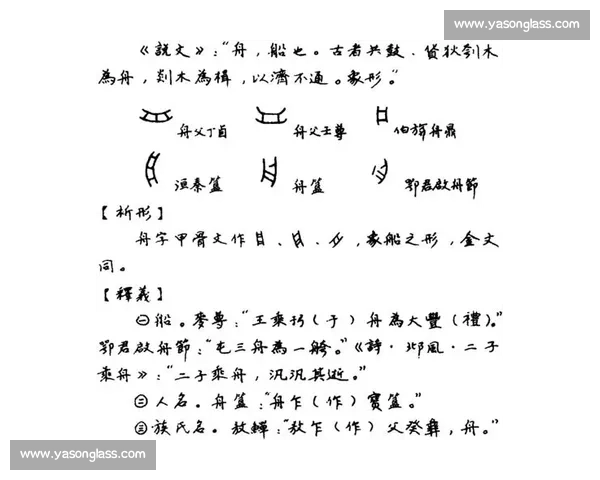 www.yasonglass.com
《説文》:“舟，船也。古者共鼓、貨狄刳木
為舟，剡木為楫，以濟不通。象形。”
舟父丁卣 舟父壬尊 伯旂舟鼎
洹秦簋 舟簋 鄂君啟舟節
【析形】
舟字甲骨文作、、，象船之形，金文
同。
【釋義】
㊀船。麥尊:“王乘于（于）舟為大豐（禮）。”
鄂君啟舟節:“屯三舟為一舿。”《詩·邶風·二子
乘舟》:“二子乘舟，汎汎其逝。”
㊁人名。舟簋:“舟乍（作）寶簋。”
㊂族氏名。㪤觶:“㪤乍（作）父癸彝，舟。”
www.yasonglass.com